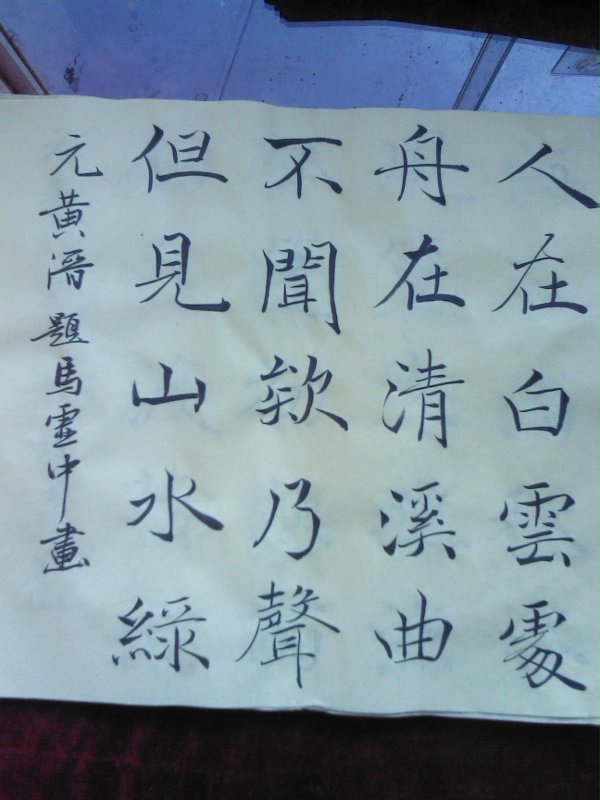 人在白雲處
舟在清溪曲
不聞欸乃聲
但見山水綠
元黃溍題馬虛中畫